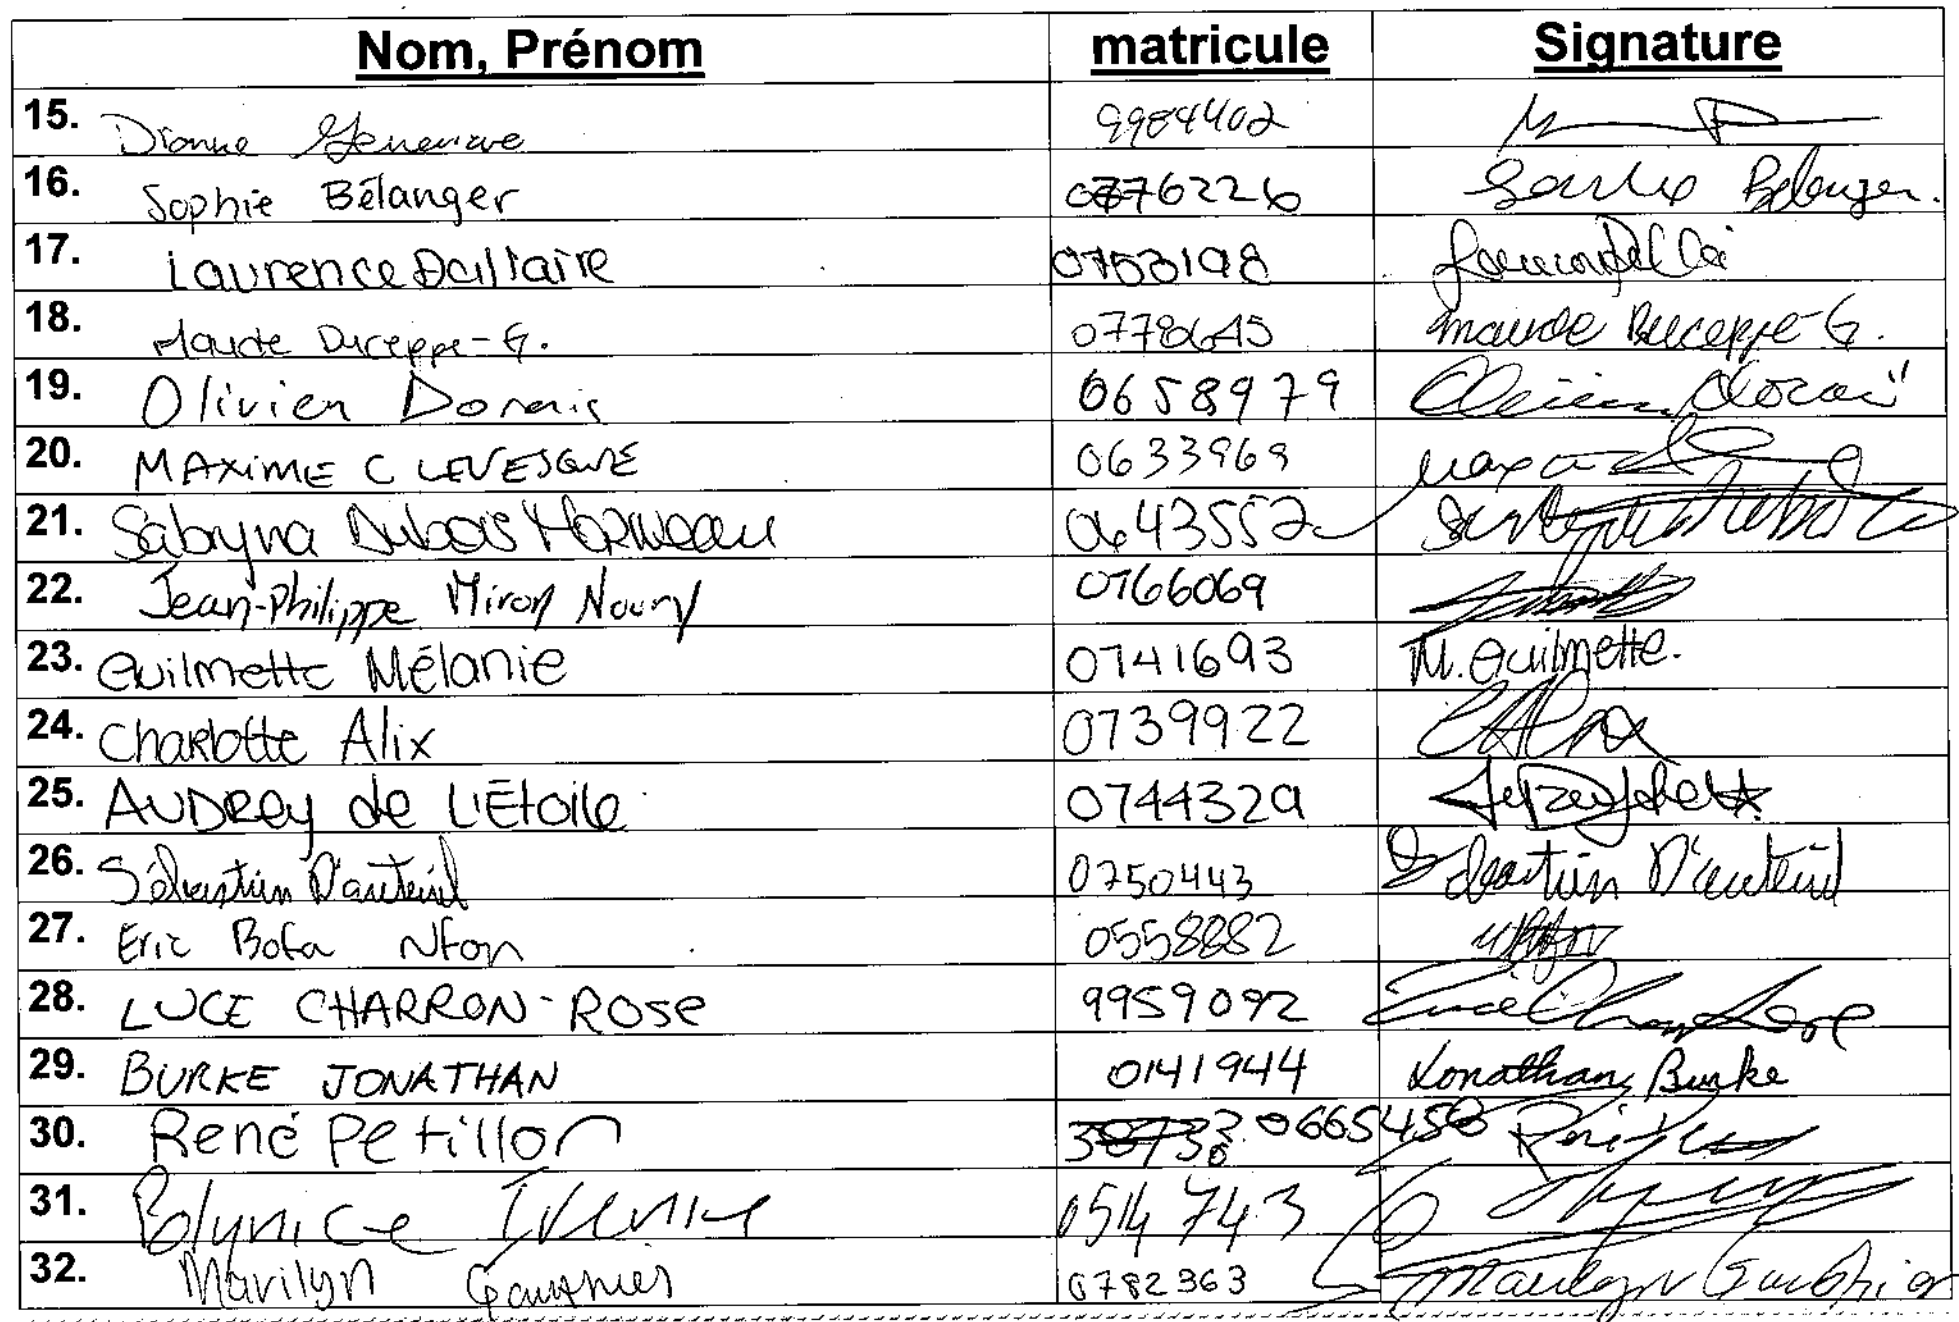 Nom, Prénom matricule Signature
15. Dionne Geneviève 9984402
16. Sophie Bélanger 0776226 Sophie Bélanger.
17. Laurence Dallaire 0753198
18. Maude Duceppe-G. 0778645 Maude Duceppe-G.
19. Olivier Dorais 0658979 Olivier Dorais
20. MAXIME C LEVESQUE 0633969
21. Sabryna Dubois Morneau 0643552
22. Jean-Philippe Miron Noury 0766069
23. Guilmette Mélanie 0741693 M. Guilmette.
24. Charlotte Alix 0739922
25. AUDREY de L'Étoile 0744329
26. Sébastien D'auteuil 0750443 Sébastien D'auteuil
27. Eric Bofa Nfon 0558882
28. LUCE CHARRON-ROSE 9959092
29. BURKE JONATHAN 0141944 Jonathan Burke
30. René Petillon 0665458
31. Polynice 0514743
32. Marilyn Gauthier 0782363 Marilyn Gauthier